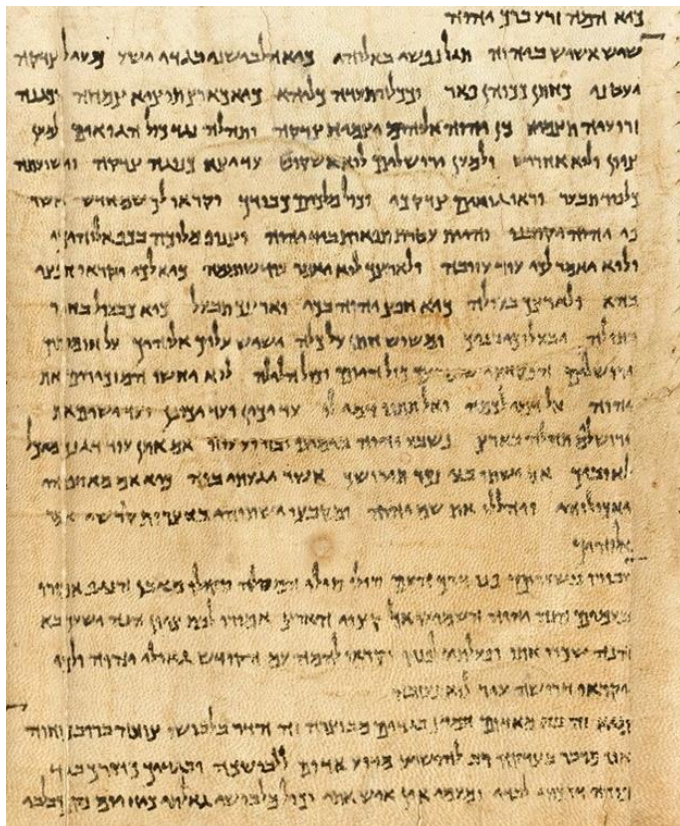 כיא המה זרע ברך יהוה
שוש אשיש ביהוה תגל נפשי באלוהי כיא הלבישני בגדי ישע מעיל צדקה
יעטני כחתן ככוהן פאר וככלה תעדה כליהא כיא כארץ תוציא צמחה וכגנה
זרועיה תצמיח כן יהוה אלוהים יצמיח צדקה ותהלה נגד כול הגואים למען
ציון לוא אחריש ולמען ירושלים לוא אשקוט עד יצא כנוגה צדקה וישועתה
כלפיד תבער וראו גואים צדקך וכול מלכים כבודך וקראו לך שם חדש אשר
פי יהוה יקובנו והיית עטרת תפארת ביד יהוה וצנוף מלוכה בכף אלוהיך
ולוא יאמר לך עוד עזובה ולארצך לוא יאמר עוד שוממה כיא לך יקראו חפצי
בהא ולארצך בעולה כיא חפץ יהוה בך וארצך תבעל כיא כבעול בחור
בתולה יבעלוך בניך ומשוש חתן על כלה ישיש עליך אלוהיך על חומותיך
ירושלים הפקדתי שומרים כול היום וכול הלילה לוא יחשו המזכירים את
יהוה אל דמי לכמה ואל תתנו דמי לו עד יכין ועד יכונן ועד ישים את
ירושלים תהלה בארץ נשבע יהוה בימינו ובזרוע עוזו אם אתן עוד דגנך מאכל
לאויביך אם ישתו בני נכר תירושך אשר יגעתי בוה כיא אם מאספיהו
יאכולוהו ויהללו את שם יהוה ומקבציו ישתוהו בחצרות קודשי אמר
אלוהיך
עבורו בשערים פנו דרך העם סולו סולו המסלה סקולו מאבן הנגף אמורו
בעמים הנה יהוה השמיע אל קצוי הארץ אמורו לבת ציון הנה ישעך בא
הנה שכרו אתו ופעלתיו לפניו וקראו להמה עם הקודש גאולי יהוה ולך
יקראו דרושה עיר לוא נעזבה
מיא זה בא מאדום חמוץ בגדים מבוצרה זה הדור בלבושו צועד ברוב כוחו
אני מדבר בצדקה רב להושיע מדוע אדום ללבושך ובגדיך כדורך בגת
פורה דרכתי לבדי ומעמי אין איש אתי וכול מלבושי גאלתי כיא יום נקם בלבי